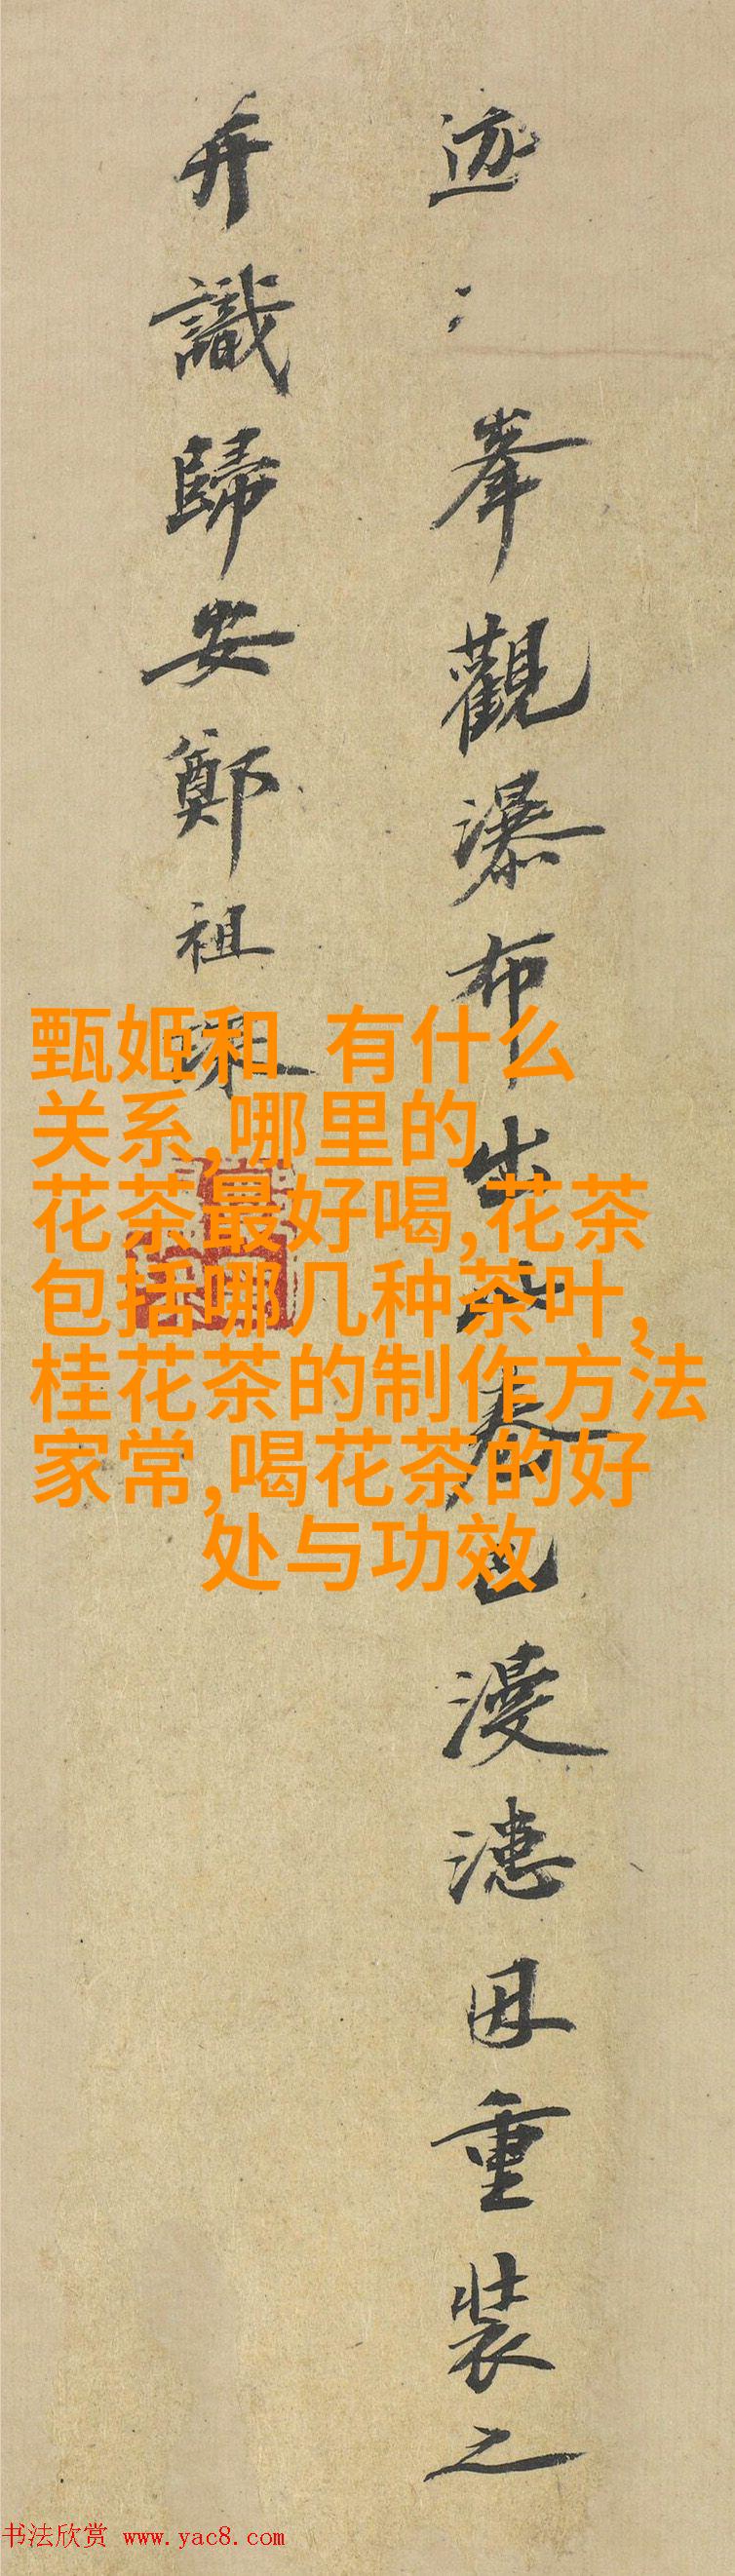 迹
峯觀瀑布出
卷已漫漶因重裝之
并識歸安鄭祖琛
甄姬和 有什么
关系,哪里的
花茶最好喝,花茶
包括哪几种茶叶,
桂花茶的制作方法
家常,喝花茶的好
处与功效
书法欣赏 www.yac8.com